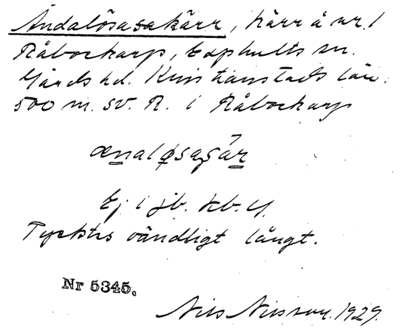 Ändalösakärr, kärr å nr. 1
Råbockarp, Degeberga sn.
Gärds hd. Kristianstads län.
500 m. SV. N. 1 Råbockarp
Ej i jb. kb. 4.
Tycktes oändligt långt.
Nr 5345.
Nils Nilsson. 1929.